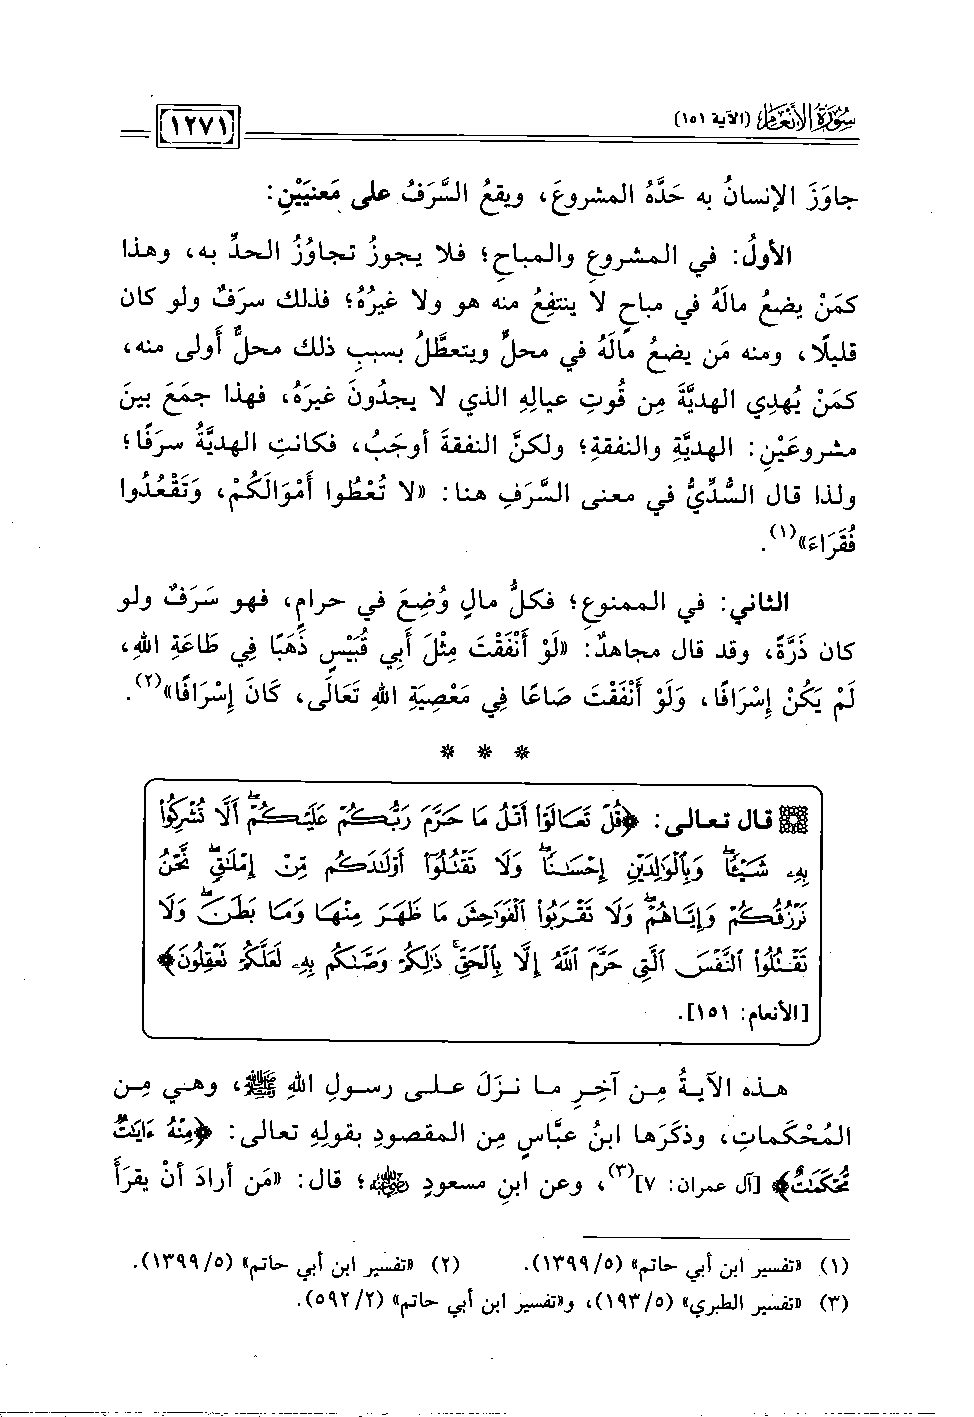 سورة الأنعام (الآية ١٥١)
١٢٧١
جاوَزَ الإنسانُ به حَدَّهُ المشروعَ، ويقعُ السَّرَفُ على مَعنيَيْنِ:
الأولُ: في المشروعِ والمباحِ؛ فلا يجوزُ تجاوُزُ الحدِّ به، وهذا
كمَنْ يضعُ مالَهُ في مباحٍ لا ينتفِعُ منه هو ولا غيرُهُ؛ فذلك سرَفٌ ولو كان
قليلًا، ومنه مَن يضعُ مالَهُ في محلٍّ ويتعطَّلُ بسببِ ذلك محلٌّ أَولى منه،
كمَنْ يُهدِي الهديَّةَ مِن قُوتِ عيالِهِ الذي لا يجدُونَ غيرَهُ، فهذا جمَعَ بينَ
مشروعَيْنِ: الهديَّةِ والنفقةِ؛ ولكنَّ النفقةَ أوجَبُ، فكانتِ الهديَّةُ سرَفًا؛
ولذا قال السُّدِّيُّ في معنى السَّرَفِ هنا: «لا تُعْطُوا أَمْوَالَكُمْ، وَتَقْعُدُوا
فُقَرَاءَ»(١).
الثاني: في الممنوعِ؛ فكلُّ مالٍ وُضِعَ في حرامٍ، فهو سَرَفٌ ولو
كان ذَرَّةً، وقد قال مجاهدٌ: «لَوْ أَنْفَقْتَ مِثْلَ أَبِي قُبَيْسٍ ذَهَبًا فِي طَاعَةِ اللهِ،
لَمْ يَكُنْ إِسْرَافًا، وَلَوْ أَنْفَقْتَ صَاعًا فِي مَعْصِيَةِ اللهِ تَعَالَى، كَانَ إِسْرَافًا»(٢).
* * *
قال تعالى: ﴿قُلْ تَعَالَوْا۟ أَتْلُ مَا حَرَّمَ رَبُّكُمْ عَلَيْكُمْ ۖ أَلَّا تُشْرِكُوا۟
بِهِۦ شَيْـًٔا ۖ وَبِٱلْوَٰلِدَيْنِ إِحْسَـٰنًا ۖ وَلَا تَقْتُلُوٓا۟ أَوْلَـٰدَكُم مِّنْ إِمْلَـٰقٍ ۖ نَّحْنُ
نَرْزُقُكُمْ وَإِيَّاهُمْ ۖ وَلَا تَقْرَبُوا۟ ٱلْفَوَٰحِشَ مَا ظَهَرَ مِنْهَا وَمَا بَطَنَ ۖ وَلَا
تَقْتُلُوا۟ ٱلنَّفْسَ ٱلَّتِى حَرَّمَ ٱللَّهُ إِلَّا بِٱلْحَقِّ ۚ ذَٰلِكُمْ وَصَّىٰكُم بِهِۦ لَعَلَّكُمْ تَعْقِلُونَ﴾
[الأنعام: ١٥١].
هذه الآيةُ مِن آخِرِ ما نزَلَ على رسولِ اللهِ ﷺ، وهي مِن
المُحْكَماتِ، وذكَرَها ابنُ عبَّاسٍ مِن المقصودِ بقولِهِ تعالى: ﴿مِنْهُ ءَايَـٰتٌ
مُّحْكَمَـٰتٌ﴾ [آل عمران: ٧](٣)، وعن ابنِ مسعودٍ رضي الله عنه؛ قال: «مَن أرادَ أنْ يقرَأَ
(١) «تفسير ابن أبي حاتم» (٥/ ١٣٩٩). (٢) «تفسير ابن أبي حاتم» (٥/ ١٣٩٩).
(٣) «تفسير الطبري» (٥/ ١٩٣)، و«تفسير ابن أبي حاتم» (٢/ ٥٩٢).